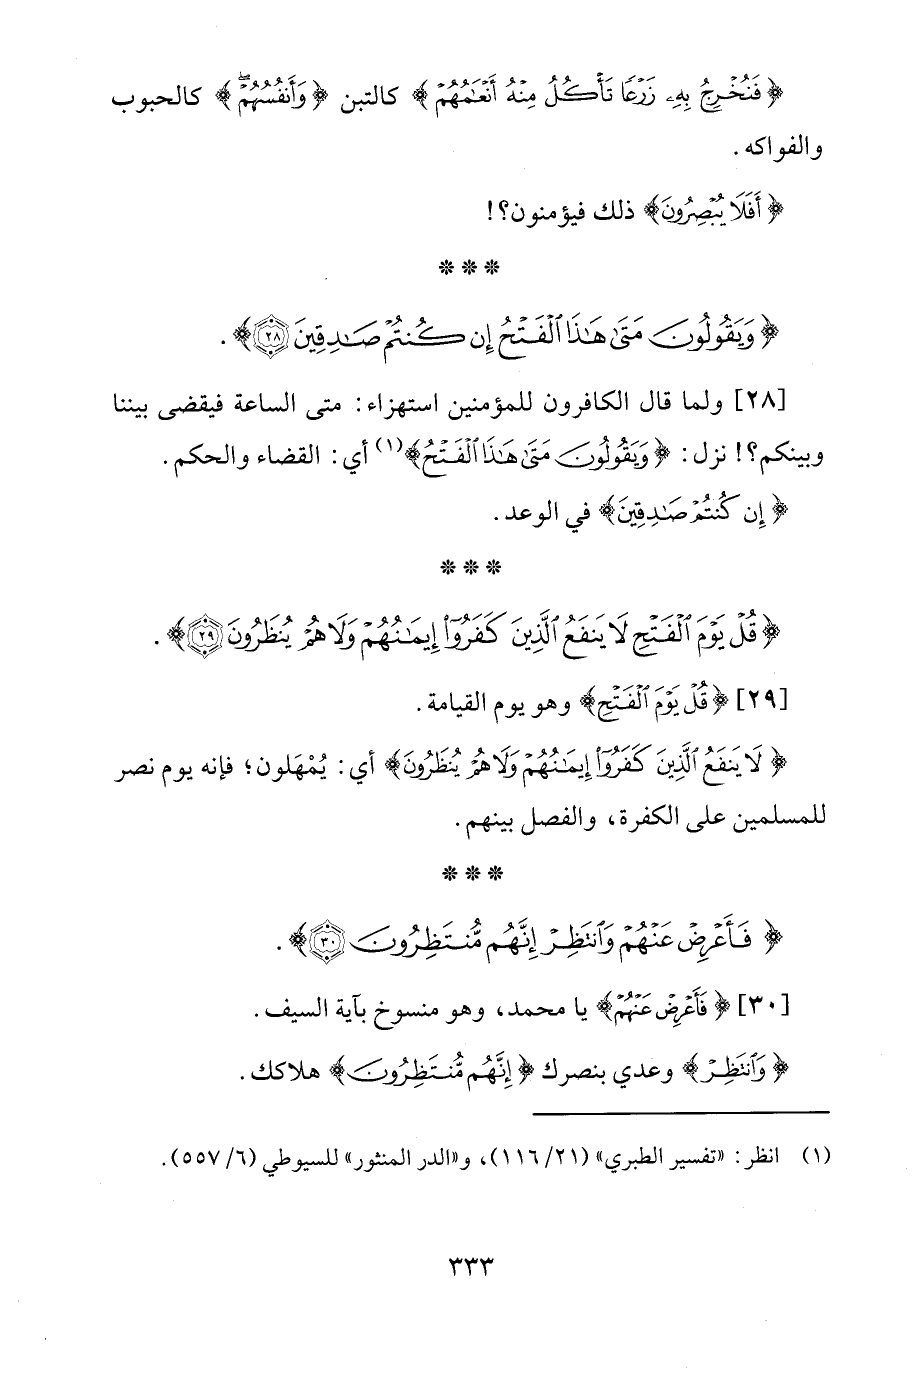 ﴿فَنُخْرِجُ بِهِۦ زَرْعًا تَأْكُلُ مِنْهُ أَنْعَٰمُهُمْ﴾ كالتبن ﴿وَأَنفُسُهُمْ ۖ﴾ كالحبوب
والفواكه.
﴿أَفَلَا يُبْصِرُونَ﴾ ذلك فيؤمنون؟!
* * *
﴿وَيَقُولُونَ مَتَىٰ هَٰذَا ٱلْفَتْحُ إِن كُنتُمْ صَٰدِقِينَ ٢٨﴾.
[٢٨] ولما قال الكافرون للمؤمنين استهزاء: متى الساعة فيقضى بيننا
وبينكم؟! نزل: ﴿وَيَقُولُونَ مَتَىٰ هَٰذَا ٱلْفَتْحُ﴾(١) أي: القضاء والحكم.
﴿إِن كُنتُمْ صَٰدِقِينَ﴾ في الوعد.
* * *
﴿قُلْ يَوْمَ ٱلْفَتْحِ لَا يَنفَعُ ٱلَّذِينَ كَفَرُوٓا۟ إِيمَٰنُهُمْ وَلَا هُمْ يُنظَرُونَ ٢٩﴾.
[٢٩] ﴿قُلْ يَوْمَ ٱلْفَتْحِ﴾ وهو يوم القيامة.
﴿لَا يَنفَعُ ٱلَّذِينَ كَفَرُوٓا۟ إِيمَٰنُهُمْ وَلَا هُمْ يُنظَرُونَ﴾ أي: يُمْهَلون؛ فإنه يوم نصر
للمسلمين على الكفرة، والفصل بينهم.
* * *
﴿فَأَعْرِضْ عَنْهُمْ وَٱنتَظِرْ إِنَّهُم مُّنتَظِرُونَ ٣٠﴾.
[٣٠] ﴿فَأَعْرِضْ عَنْهُمْ﴾ يا محمد، وهو منسوخ بآية السيف.
﴿وَٱنتَظِرْ﴾ وعدي بنصرك ﴿إِنَّهُم مُّنتَظِرُونَ﴾ هلاكك.
(١) انظر: «تفسير الطبري» (٢١/ ١١٦)، و«الدر المنثور» للسيوطي (٦/ ٥٥٧).
٣٣٣